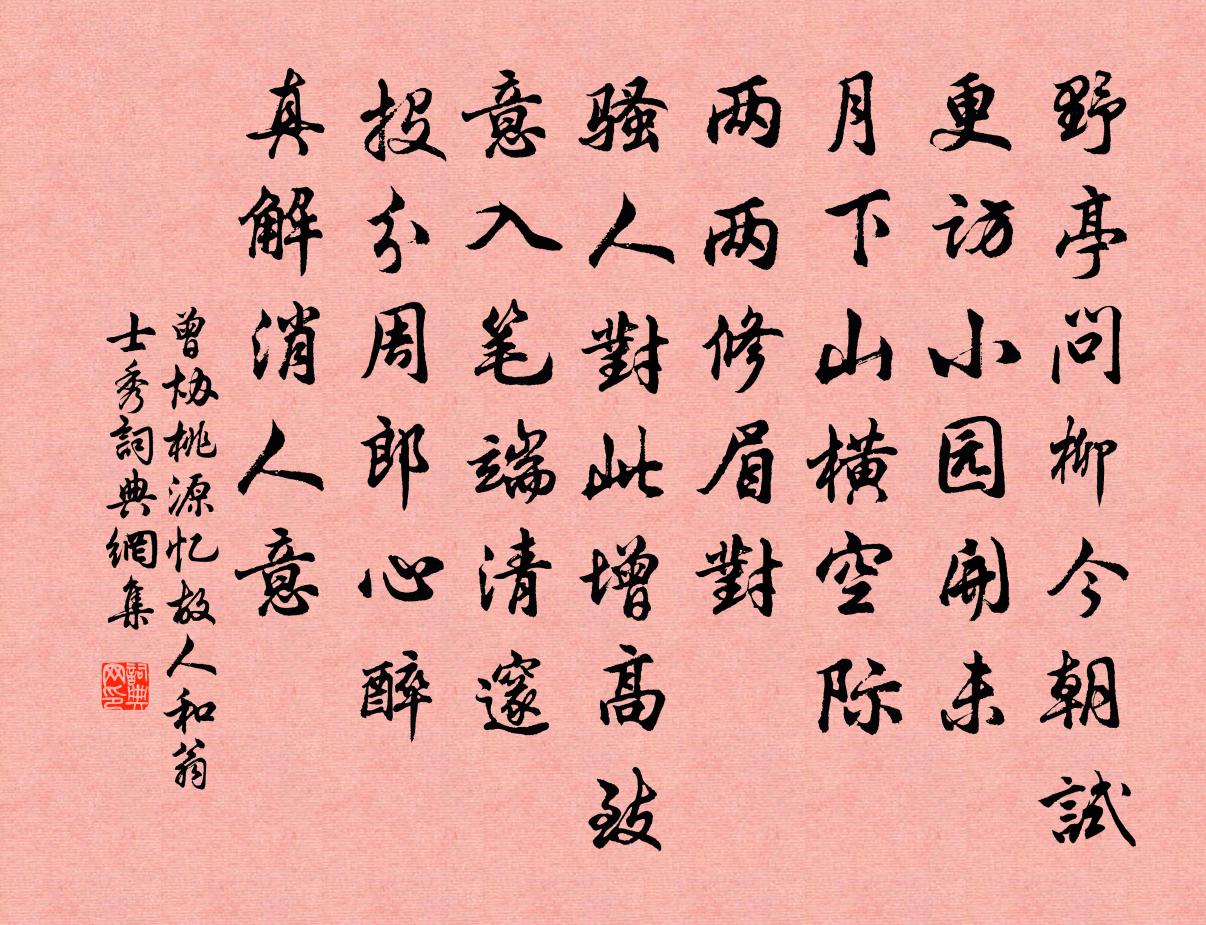 野亭问柳今朝試
更访小园开未
月下山横空际
两两修眉對
骚人對此增高致
意入笔端清邃
投分周郎心醉
真解消人意
曾协桃源忆故人和翁
士秀詞典網集
詞典
网印